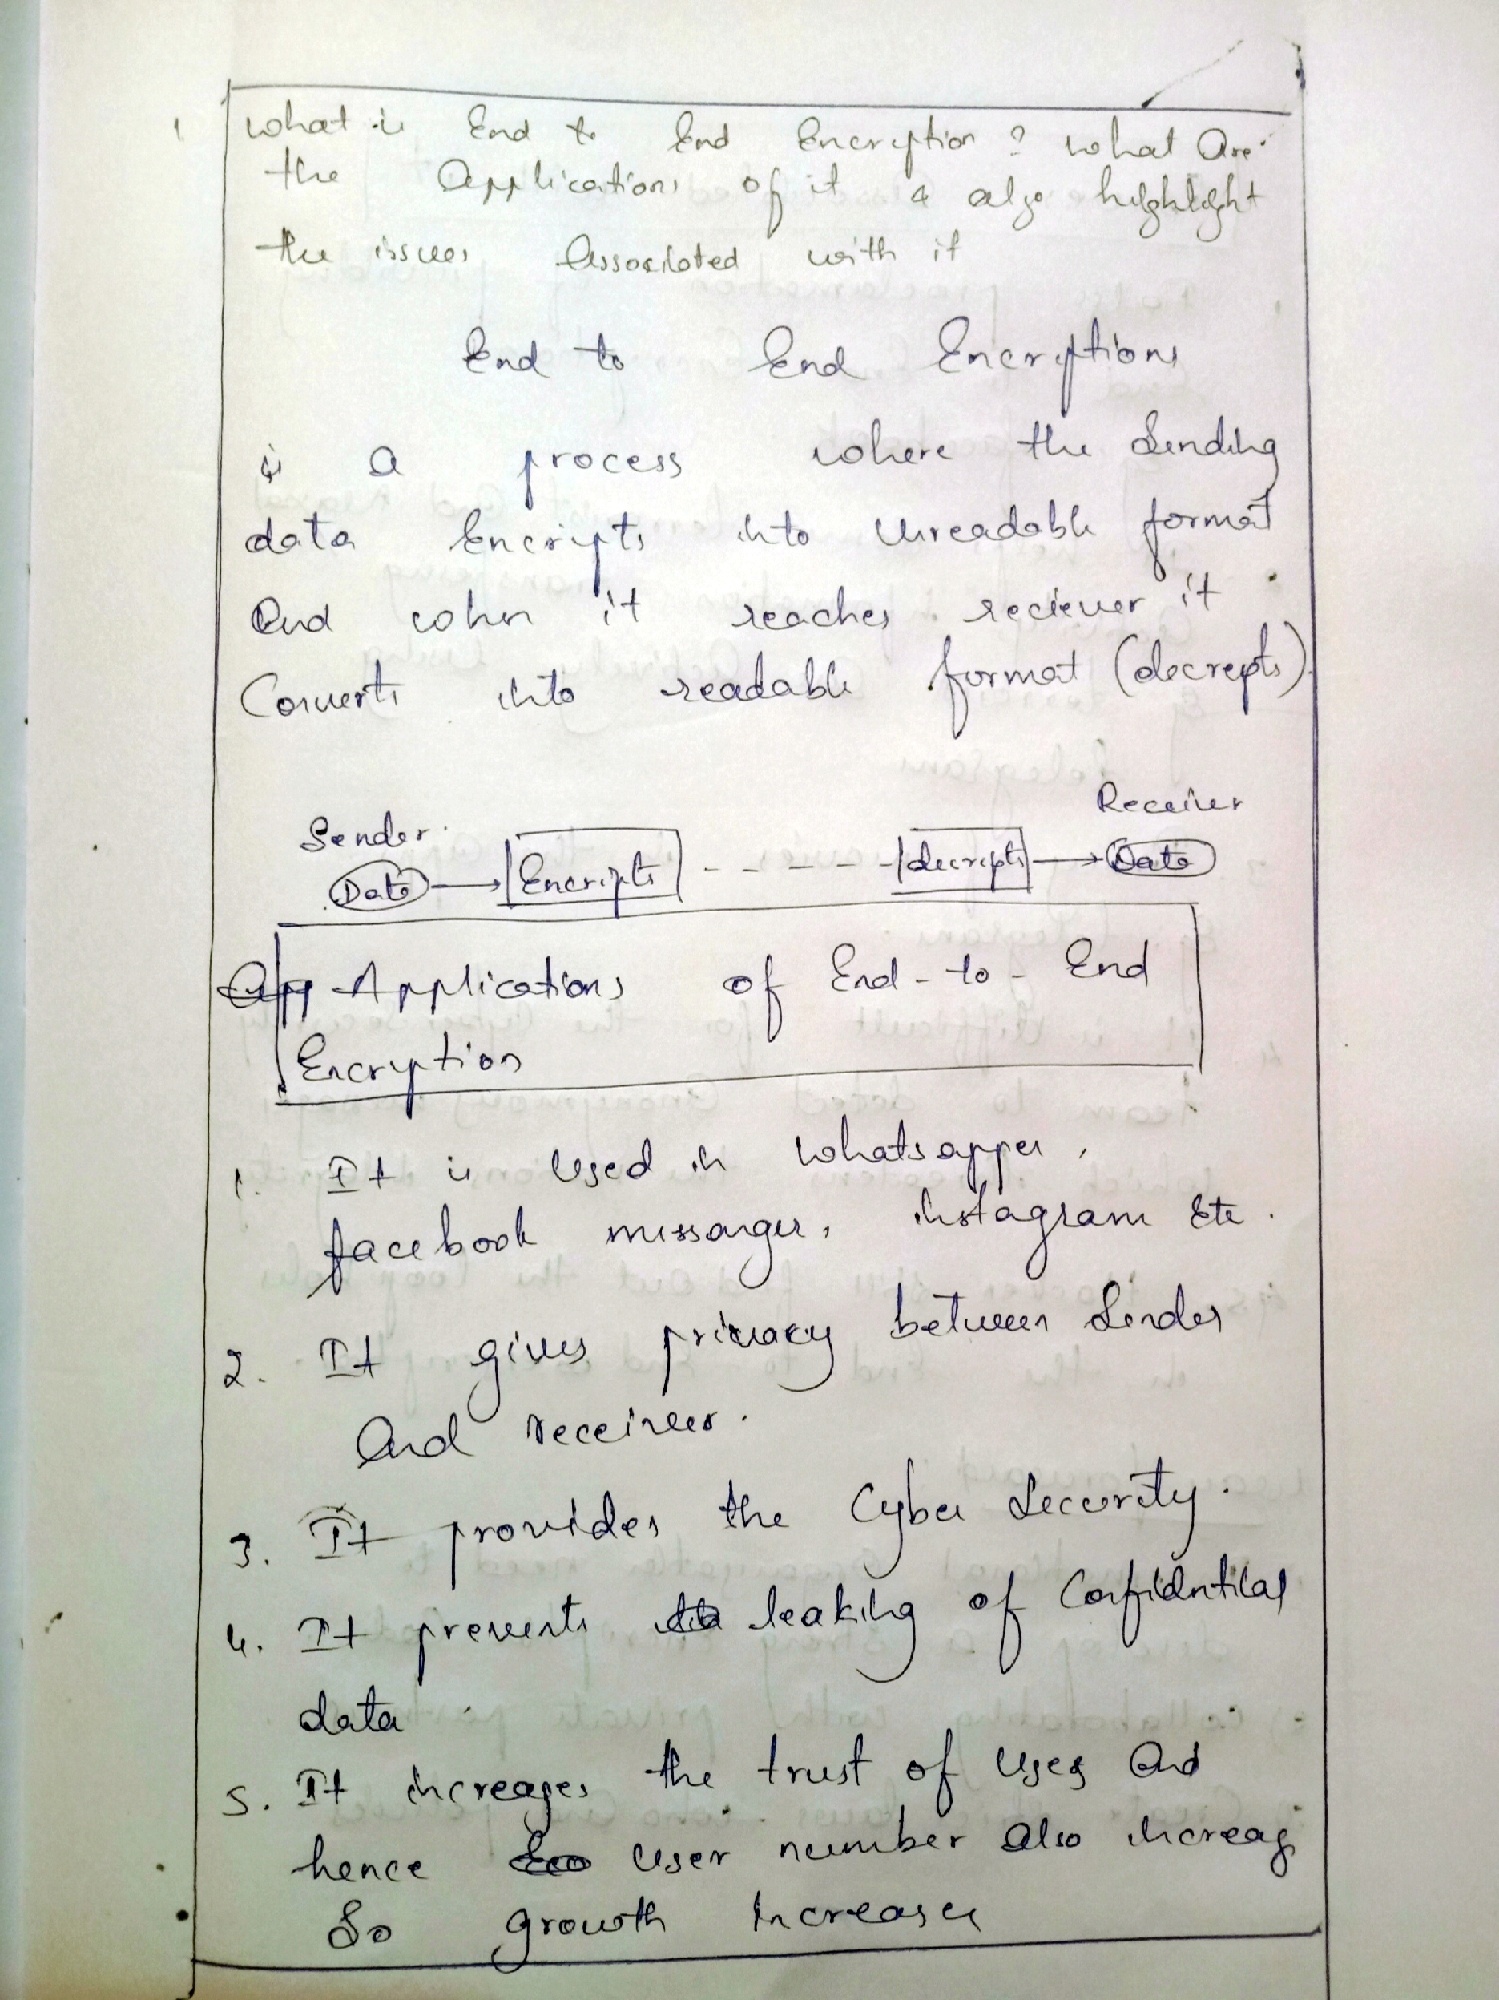 1 What is End to End Encryption ? What Are
the Applications of it & also highlight
the issues Associated with it
End to End Encryptions
is a process where the sending
data Encripts into Unreadable format
And when it reaches reciever it
Converts into readable format (decrepts).
Sender Receiver
Data Encripts decripts Data
App Applications of End-to-End
Encryption
1. It is Used in Whatsapper,
facebook missanger, instagram Etc.
2. It gives privacy between Sender
And receiver.
3. It provides the Cyber Security.
4. It prevents leaking of Confidential
data
5. It increases the trust of Uses And
hence User number also increas
So growth increases